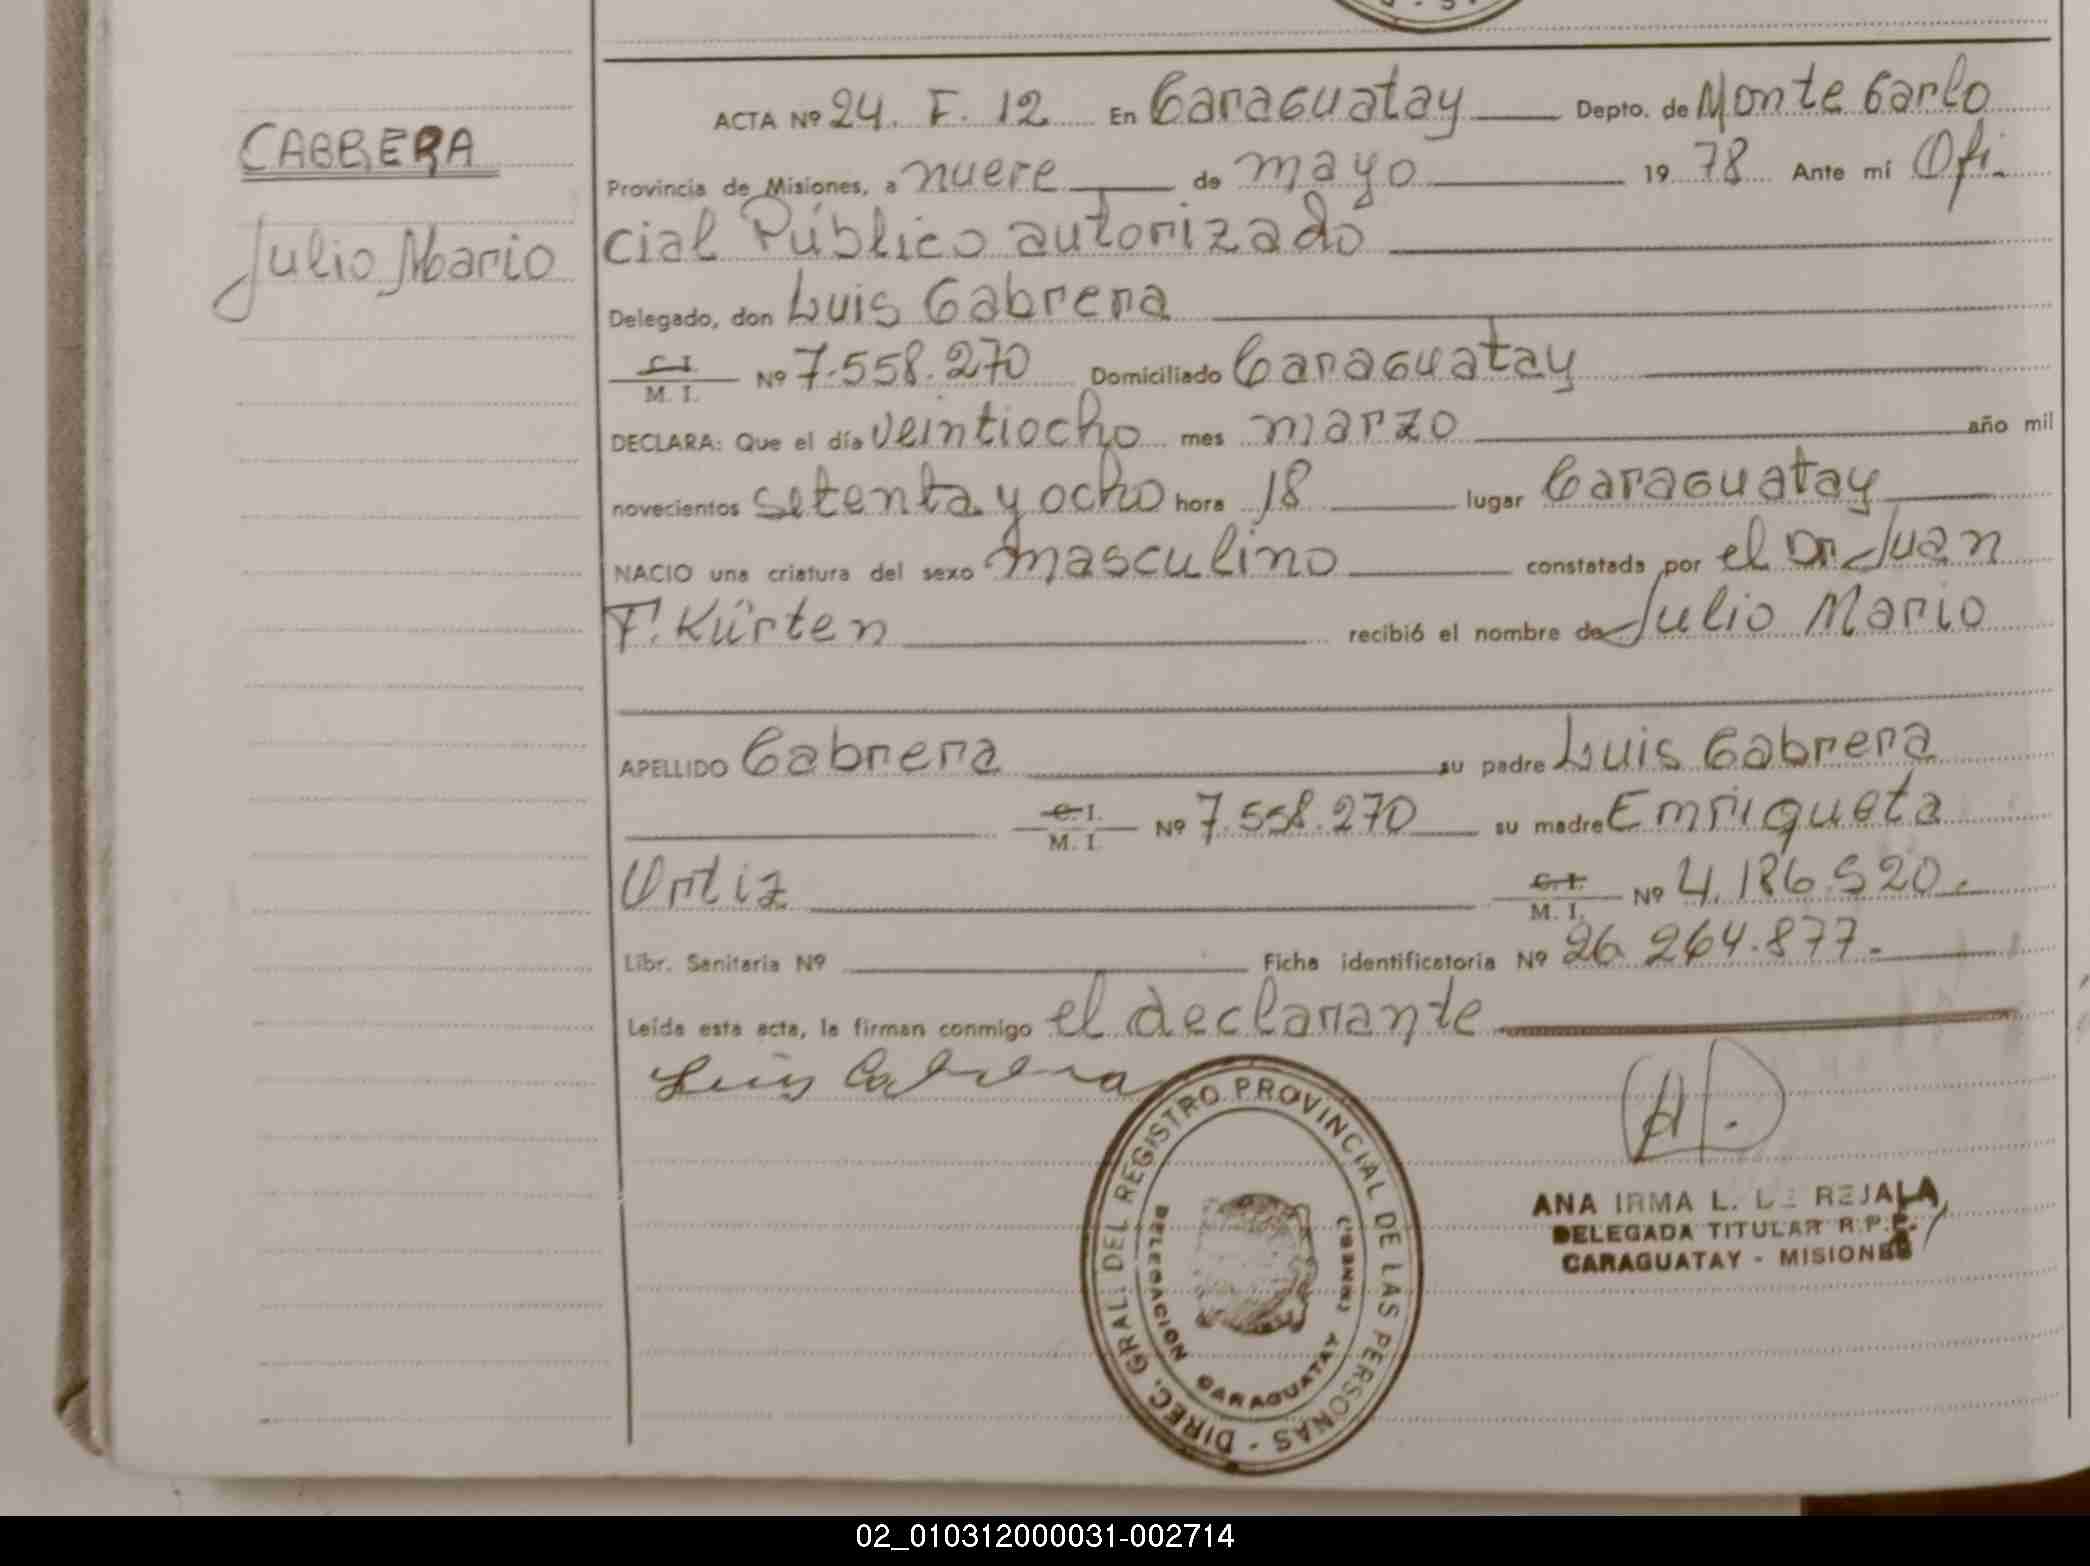 CABRERA
Julio Mario
ACTA Nº 24. F. 12 En Caraguatay Depto. de Monte Carlo
Provincia de Misiones, a nueve de mayo 1978 Ante mí Ofi-
cial Público autorizado
Delegado, don Luis Cabrera
C.I. M. I. Nº 7.558.270 Domiciliado Caraguatay
DECLARA: Que el día veintiocho mes marzo año mil
novecientos setenta y ocho hora 18 lugar Caraguatay
NACIO una criatura del sexo masculino constatada por el Dr Juan
F. Kürten recibió el nombre de Julio Mario
APELLIDO Cabrera su padre Luis Cabrera
C.I. M. I. Nº 7.558.270 su madre Enriqueta
Ortiz C.I. M. I. Nº 4.186.520.
Libr. Sanitaria Nº Ficha identificatoria Nº 26 264.877.-
Leída esta acta, la firman conmigo el declarante
Luis Cabrera
DIREC. GRAL. DEL REGISTRO PROVINCIAL DE LAS PERSONAS -
DELEGACION CARAGUATAY
ANA IRMA L. DE REJALA
DELEGADA TITULAR R.P.P.
CARAGUATAY - MISIONES
02_010312000031-002714